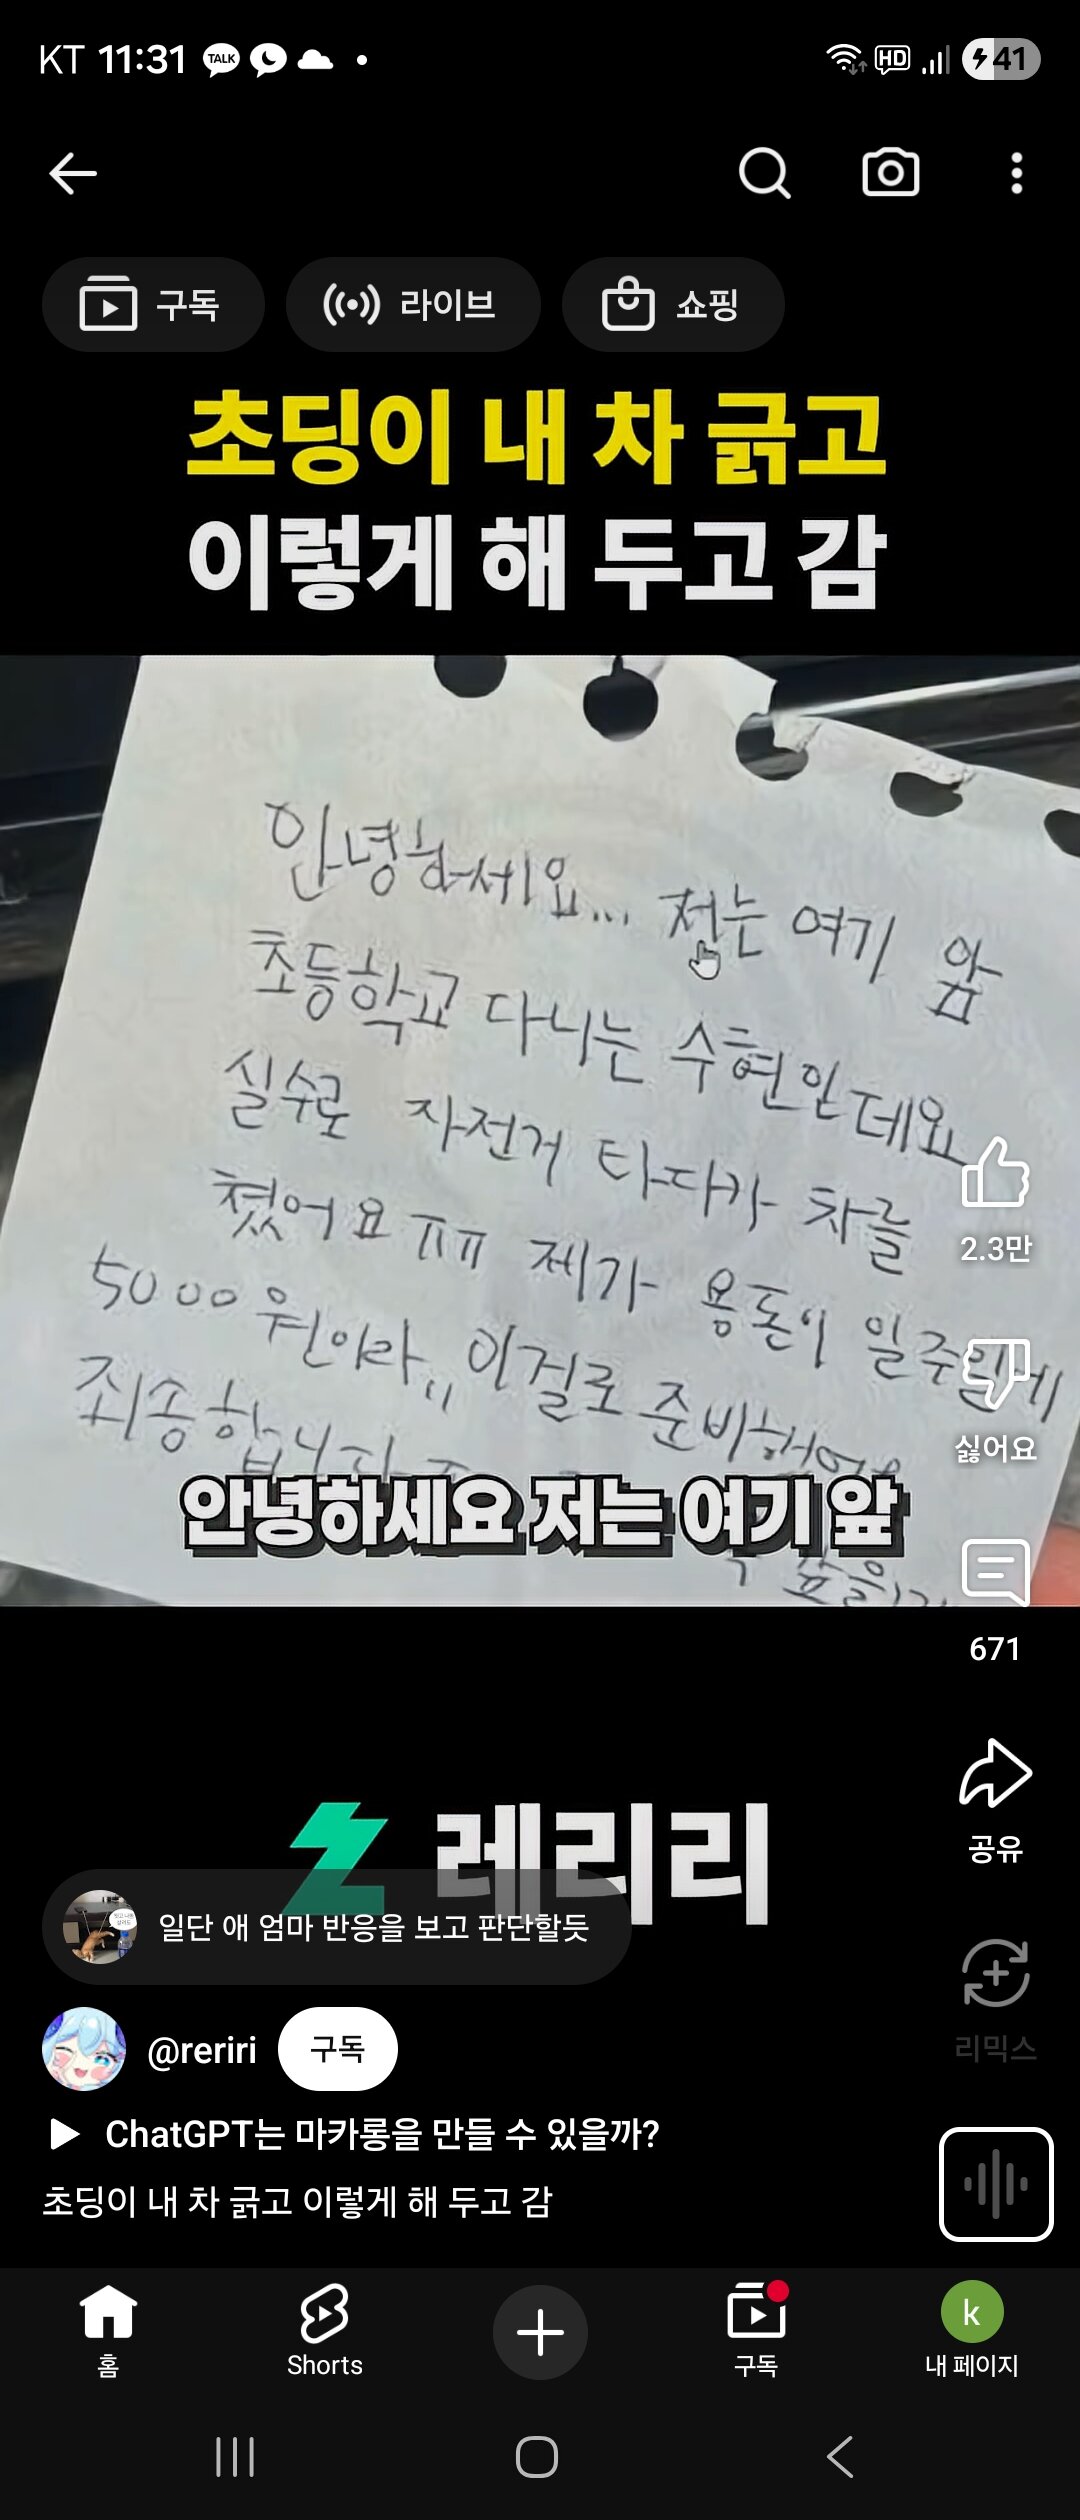 KT 11:31 TALK HD 41
구독 라이브 쇼핑
초딩이 내 차 긁고
이렇게 해 두고 감
안녕하세요... 저는 여기 앞
초등학교 다니는 수현인데요
실수로 자전거 타다가 차를
쳤어요 ㅠㅠ 제가 용돈이 일주일에
5000원이라,, 이걸로 준비했어요
죄송합니다
안녕하세요 저는 여기 앞
2.3만
싫어요
671
공유
리믹스
레리리
일단 애 엄마 반응을 보고 판단할듯
@reriri 구독
ChatGPT는 마카롱을 만들 수 있을까?
초딩이 내 차 긁고 이렇게 해 두고 감
홈 Shorts 구독 k 내 페이지